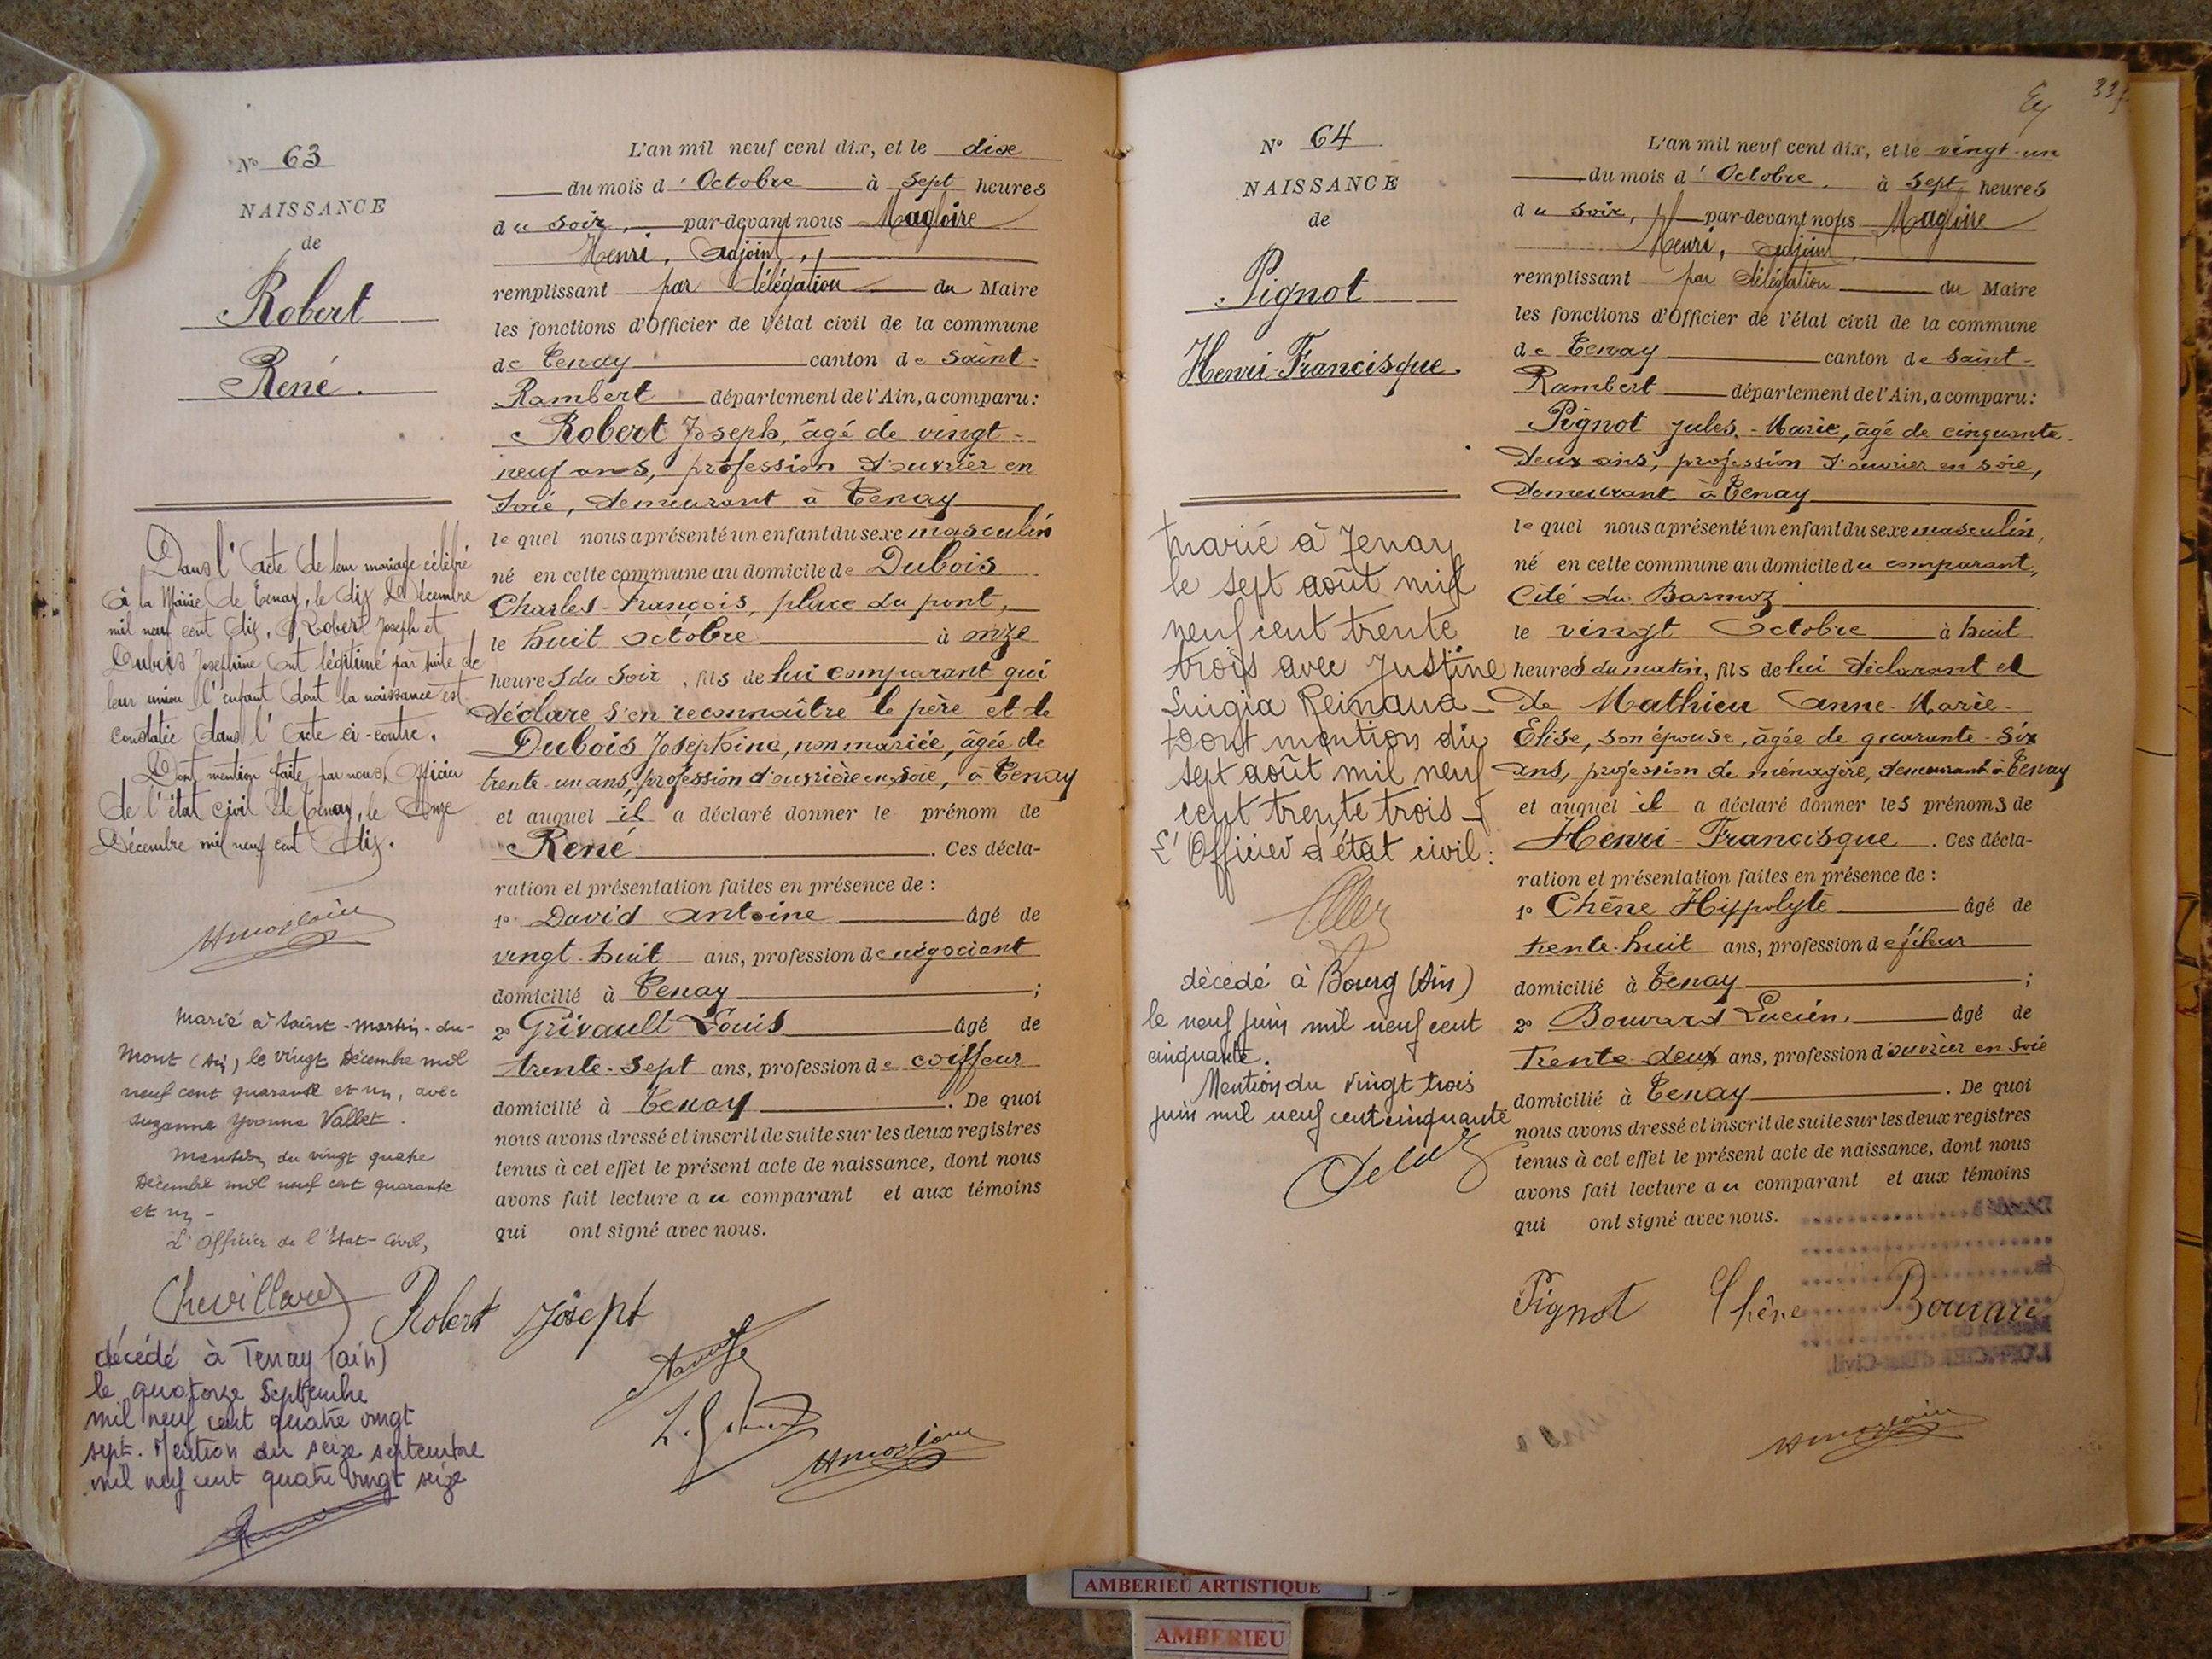 N° 63
NAISSANCE
de
Robert
René.
Dans l'acte de leur mariage célébré
à la Mairie de Tenay, le dix Décembre
mil neuf cent dix, Robert Joseph et
Dubois Josephine ont légitimé par suite de
leur union l'enfant dont la naissance est
constatée dans l'acte ci-contre.
Dont mention faite par nous, Officier
de l'état civil de Tenay, le onze
Décembre mil neuf cent dix.
Marié à Saint-Martin-du-
Mont (Ain) le vingt Décembre mil
neuf cent quarante et un, avec
Suzanne Yvonne Vallet.
Mention du vingt quatre
Décembre mil neuf cent quarante
et un -
L'Officier de l'Etat-Civil,
Chevillard
décédé à Tenay (ain)
le quatorze Septembre
mil neuf cent quatre vingt
sept. Mention du seize septembre
mil neuf cent quatre vingt seize
L'an mil neuf cent dix, et le dix
du mois d'Octobre à sept heures
du soir, par-devant nous Magloire
Henri, adjoint,
remplissant par délégation du Maire
les fonctions d'Officier de l'état civil de la commune
de Tenay canton de Saint-
Rambert département de l'Ain, a comparu:
Robert Joseph, âgé de vingt-
neuf ans, profession d'ouvrier en
soie, demeurant à Tenay
lequel nous a présenté un enfant du sexe masculin
né en cette commune au domicile de Dubois
Charles-François, place du pont,
le huit octobre à onze
heures du soir, fils de lui comparant qui
déclare s'en reconnaître le père et de
Dubois Josephine, non mariée, âgée de
trente-un ans, profession d'ouvrière en soie, à Tenay
et auquel il a déclaré donner le prénom de
René. Ces décla-
ration et présentation faites en présence de :
1° David Antoine âgé de
vingt-huit ans, profession de négociant
domicilié à Tenay ;
2° Grivault Louis âgé de
trente-sept ans, profession de coiffeur
domicilié à Tenay. De quoi
nous avons dressé et inscrit de suite sur les deux registres
tenus à cet effet le présent acte de naissance, dont nous
avons fait lecture au comparant et aux témoins
qui ont signé avec nous.
Robert Joseph
Hmagloire
33
N° 64
NAISSANCE
de
Pignot
Henri-Francisque.
Marié à Tenay
le sept août mil
neuf cent trente
trois avec Justine
Luigia Reinaud -
Dont mention du
sept août mil neuf
cent trente trois -
L'Officier d'état civil :
décédé à Bourg (Ain)
le neuf juin mil neuf cent
cinquante.
Mention du vingt trois
juin mil neuf cent cinquante
L'an mil neuf cent dix, et le vingt-un
du mois d'Octobre, à sept heures
du soir, par-devant nous Magloire
Henri, adjoint,
remplissant par délégation du Maire
les fonctions d'Officier de l'état civil de la commune
de Tenay canton de Saint-
Rambert département de l'Ain, a comparu:
Pignot Jules-Marie, âgé de cinquante-
deux ans, profession d'ouvrier en soie,
demeurant à Tenay
lequel nous a présenté un enfant du sexe masculin,
né en cette commune au domicile du comparant,
Cité du Barmoz
le vingt Octobre à huit
heures du matin, fils de lui déclarant et
de Mathieu Anne-Marie-
Elise, son épouse, âgée de quarante-six
ans, profession de ménagère, demeurant à Tenay
et auquel il a déclaré donner les prénoms de
Henri-Francisque. Ces décla-
ration et présentation faites en présence de :
1° Chêne Hippolyte âgé de
trente-huit ans, profession de fileur
domicilié à Tenay ;
2° Bouvard Lucien, âgé de
trente-deux ans, profession d'ouvrier en soie
domicilié à Tenay. De quoi
nous avons dressé et inscrit de suite sur les deux registres
tenus à cet effet le présent acte de naissance, dont nous
avons fait lecture au comparant et aux témoins
qui ont signé avec nous.
Pignot Chêne Bouvard
Hmagloire
AMBERIEU ARTISTIQUE
AMBERIEU